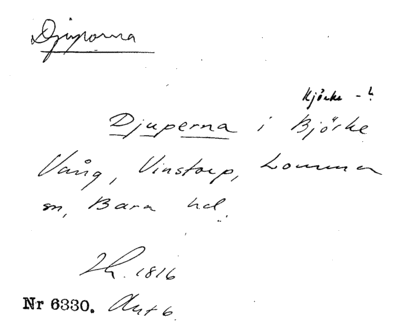 Djuporna
Kjörke - ?
Djuperna i Björke
Vång, Vinstorp, Lomma
sn, Bara hd.
Lh. 1816
Nr 6330. Akt 6